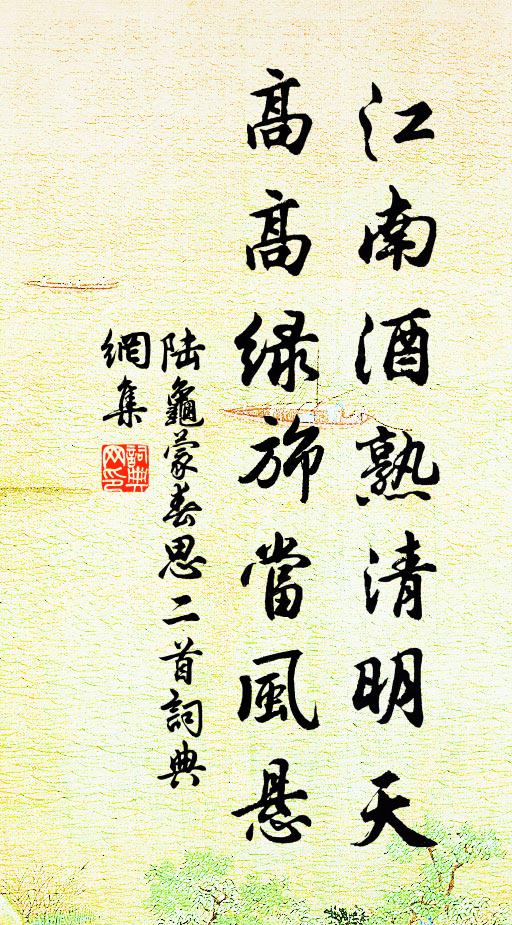 江南酒熟清明天
高高绿旆當風悬
陆龜蒙春思二首詞典
網集
詞典
网印